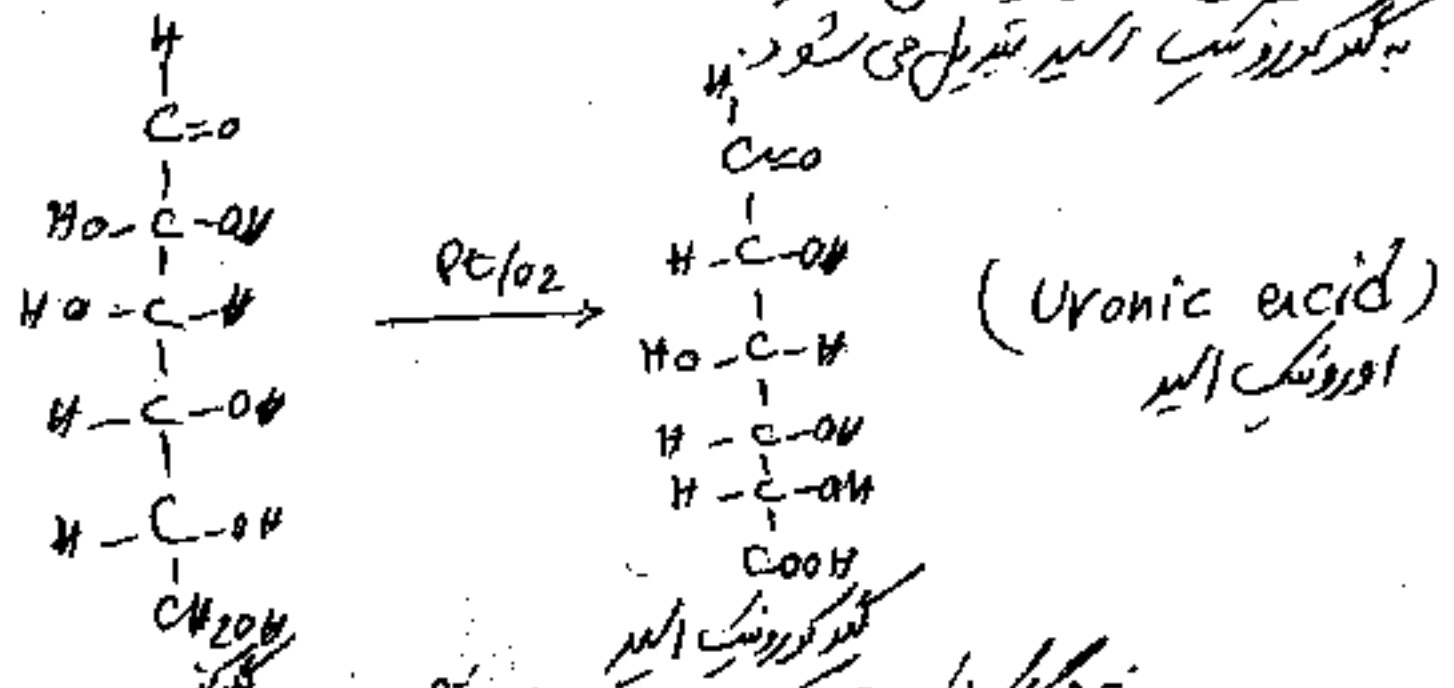 به گلوکورونیک اسید تبدیل می شود.
H
C=O
HO-C-OH
HO-C-H
H-C-OH
H-C-OH
CH2OH
Pt/O2
H
C=O
H-C-OH
HO-C-H
H-C-OH
H-C-OH
COOH
گلوکورونیک اسید
(Uronic acid)
اورونیک اسید